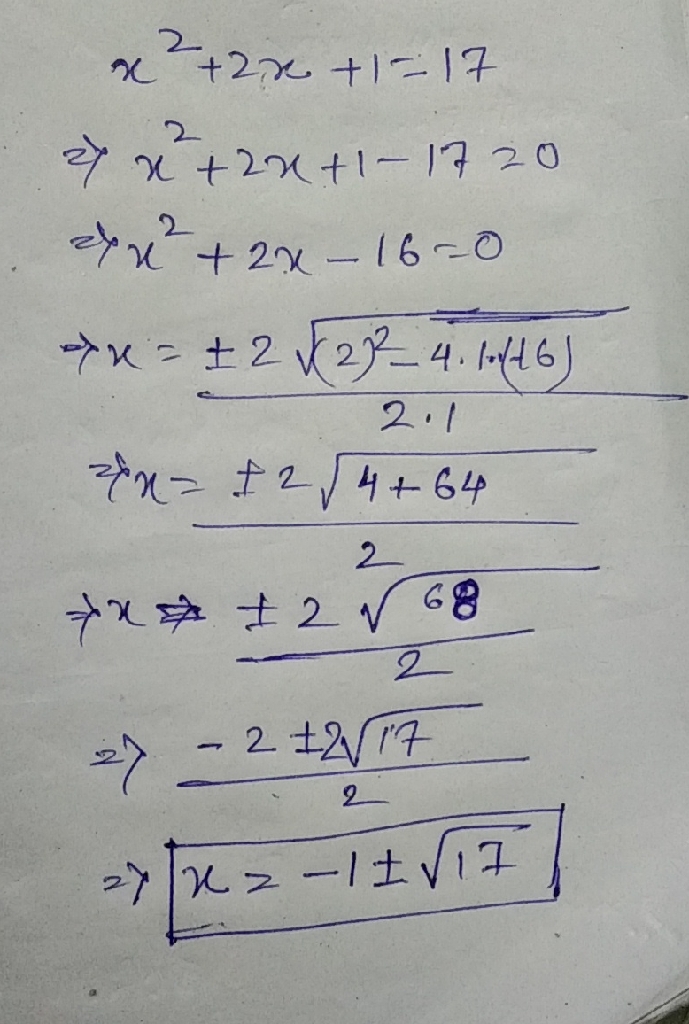 x²+2x+1=17
⇒ x²+2x+1-17=0
⇒ x²+2x-16=0
⇒ x = ±2√(2)²-4.1.(16)
2.1
⇒ x = ±2√4+64
2
⇒ x ⇒ ±2√68
2
⇒ -2±2√17
2
⇒ x = -1±√17